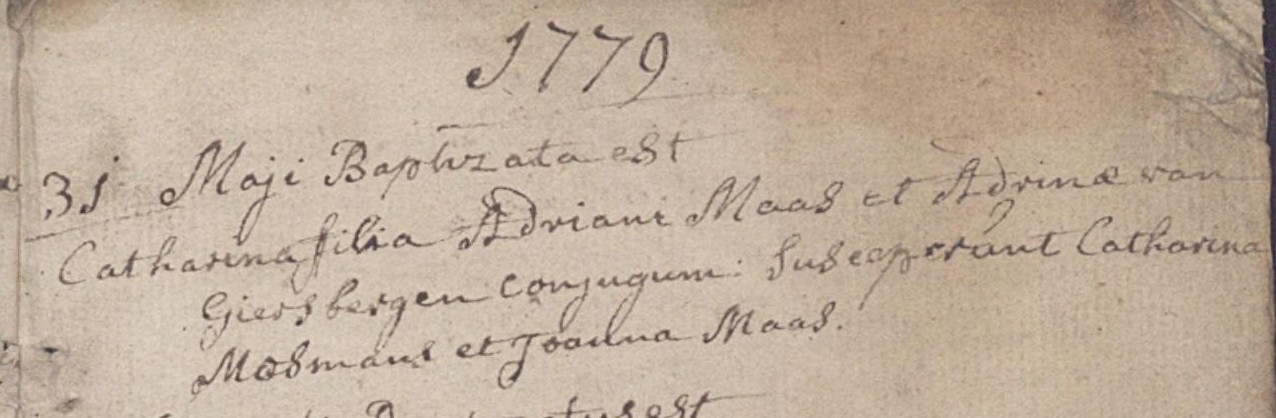 1779
31 Maji Baptizata est
Catharina filia Adriani Maas et Adrinæ van
Giersbergen conjugum: Susceperunt Catharina
Mosmans et Joanna Maas.
est